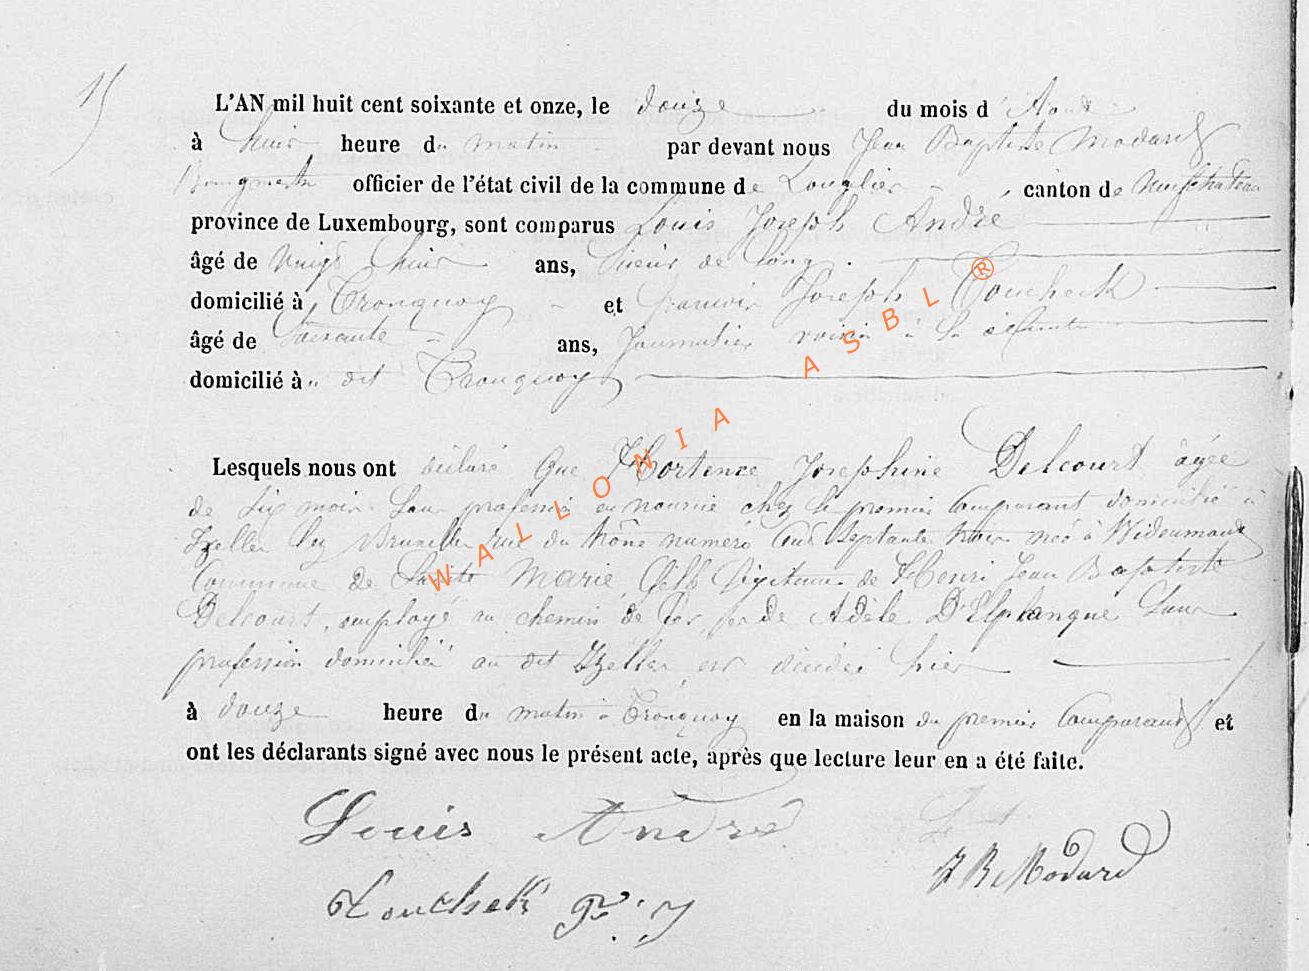 15
L'AN mil huit cent soixante et onze, le douze du mois d'Aout
à huit heure du matin par devant nous Jean Baptiste Modard
Bourgmestre officier de l'état civil de la commune de Longlier canton de Neufchateau
province de Luxembourg, sont comparus Louis Joseph André
âgé de vingt huit ans, Scieur de long
domicilié à Tronquoy et François Joseph Toucheck
âgé de Soixante ans, Journalier voisin à la défunte
domicilié à dit Tronquoy
Lesquels nous ont déclaré que Hortence Josephine Delcourt âgée
de six mois Sans profession en nourrice chez le premier Comparant domicilié à
Ixelles lez Bruxelles rue du trône numéro Cent Septante trois née à Widoumont
Commune de Sainte Marie, fille légitime de Henri Jean Baptiste
Delcourt, employé au chemin de fer, et de Adèle D'Elplanque Sans
profession domicilié au dit Ixelles est décédée hier
à douze heure du matin à Tronquoy en la maison du premier Comparant et
ont les déclarants signé avec nous le présent acte, après que lecture leur en a été faite.
Louis André
J B Modard
Touchek
WALLONIA ASBL ®